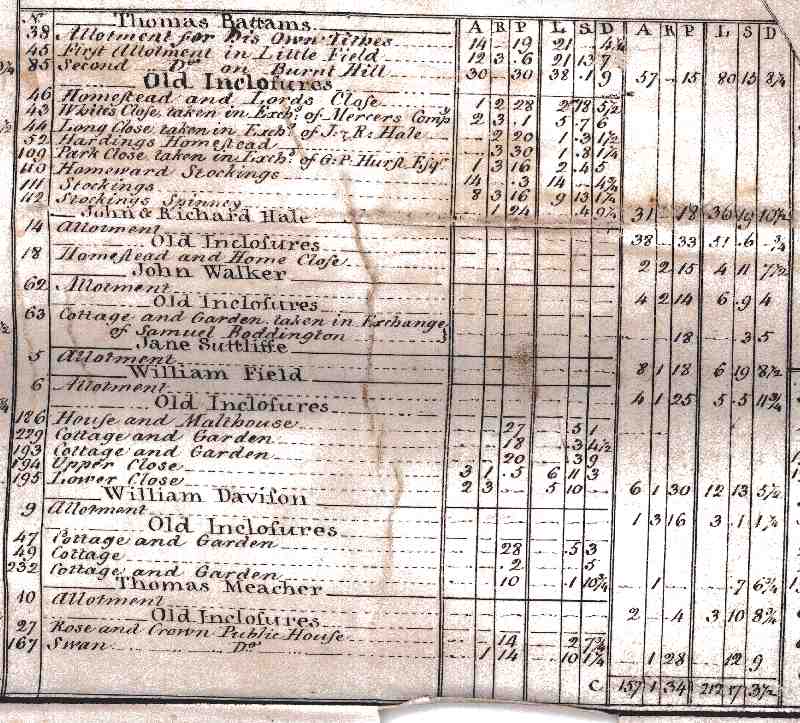 No. Thomas Battams A R P L S D A R P L S D
38 Allotment for His Own Tithes 14 - 19 21 - 4¼
45 First Allotment in Little Field 12 3 6 21 13 7
85 Second Do. on Burnt Hill 30 - 30 38 1 9 57 - 15 80 15 8¼
Old Inclosures
46 Homestead and Lords Close 1 2 28 2 18 5½
43 Whites Close taken in Exch. of Mercers Compy 2 3 1 5 7 6
44 Long Close taken in Exch. of J. & R. Hale - 2 20 1 3 1½
52 Hardings Homestead - 3 30 1 8 1¼
109 Park Close taken in Exch. of G. P. Hurst Esqr 1 3 16 2 4 5
110 Homeward Stockings 14 - 3 14 - 4¾
111 Stockings 8 3 16 9 13 1¼
112 Stockings Spinney - 1 24 - 4 9¼ 31 - 18 36 19 10½
John & Richard Hale
14 Allotment 38 - 33 51 6 ¾
Old Inclosures
18 Homestead and Home Close 2 2 15 4 11 7½
John Walker
62 Allotment 4 2 14 6 9 4
Old Inclosures
63 Cottage and Garden taken in Exchange
of Samuel Boddington } 18 - 3 5
Jane Suttliffe
5 Allotment 8 1 18 6 19 8½
William Field
6 Allotment 4 1 25 5 5 11¾
Old Inclosures
186 House and Malthouse 27 5 1
229 Cottage and Garden 18 3 4½
193 Cottage and Garden 20 3 9
194 Upper Close 3 1 5 6 11 3
195 Lower Close 2 3 - 5 10 - 6 1 30 12 13 5½
William Davison
9 Allotment 1 3 16 3 1 1¼
Old Inclosures
47 Cottage and Garden 28 5 3
49 Cottage 2 5
232 Cottage and Garden 10 1 10¾ 1 - 7 6¾
Thomas Meacher
10 Allotment 2 - 4 3 10 8¾
Old Inclosures
27 Rose and Crown Public House 14 2 7¾
167 Swan Do. 1 14 10 1¼ 1 28 12 9
C. 157 1 34 212 17 3½